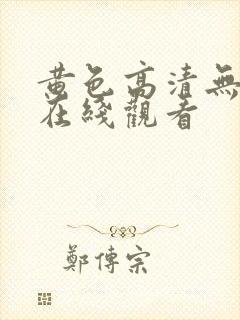 黄色高清無
在綫觀看
鄭傳宗